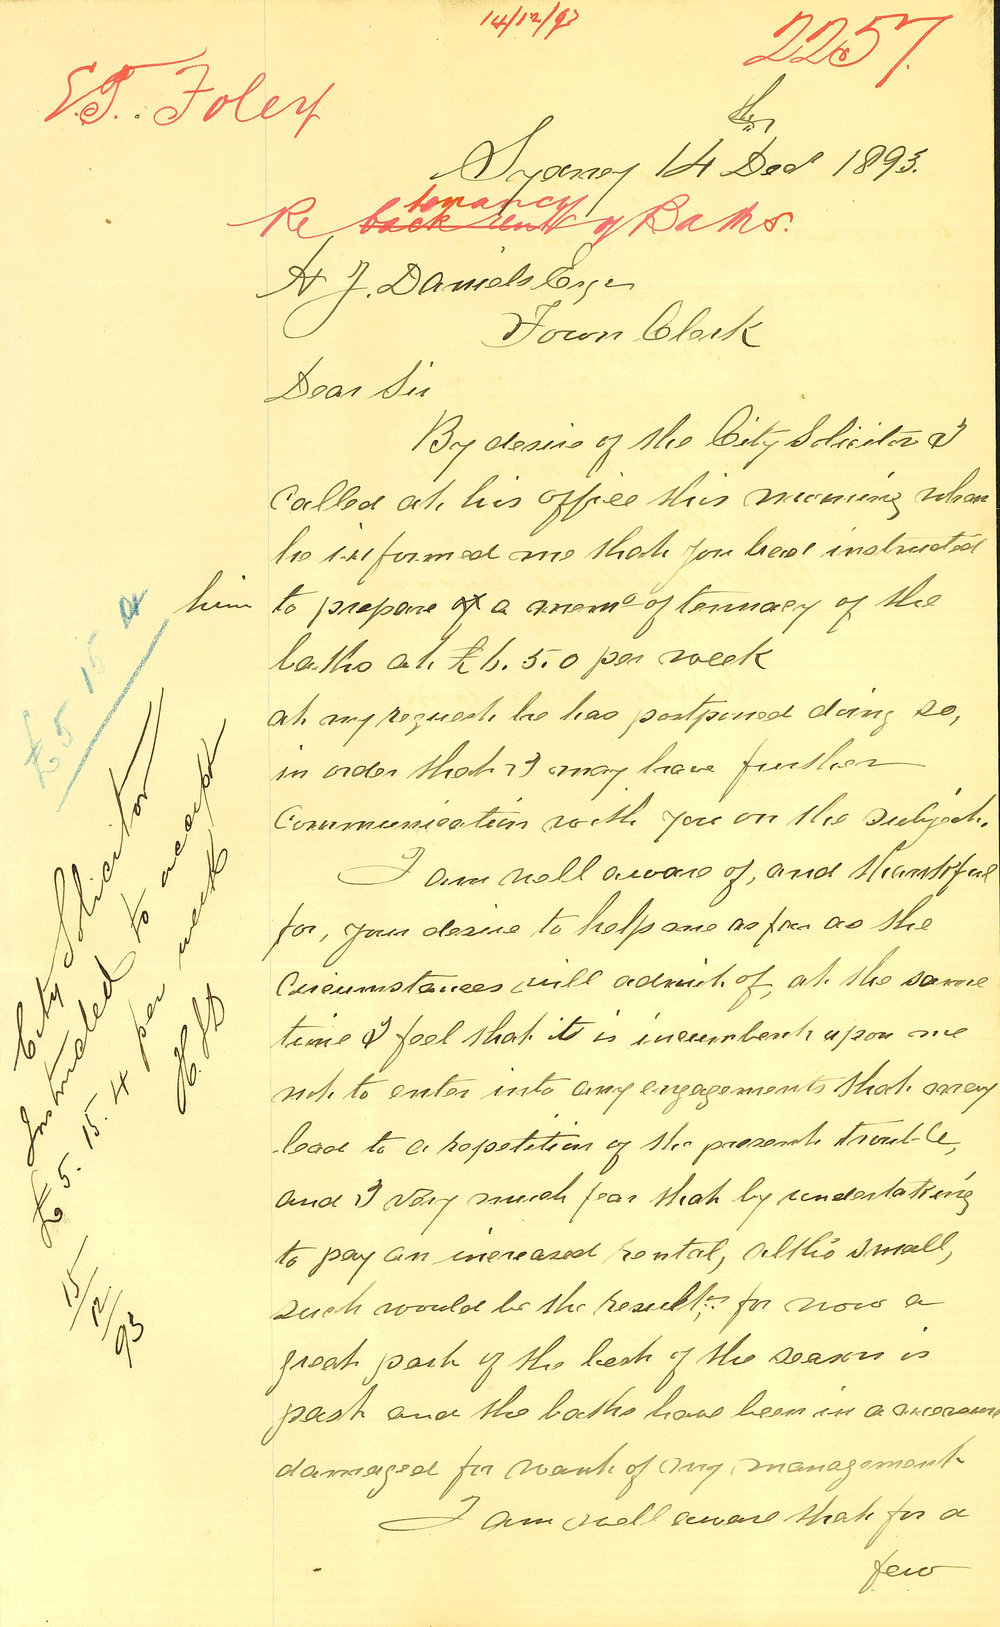 14/12/93
2257.
E. T. Foley
Sydney 14th Decr 1893.
tenancy
Re back rent of Baths.
H J. Daniels Esqre
Town Clerk
Dear Sir
By desire of the City Solicitor I
called at his office this morning when
he informed me that you had instructed
him to prepare of a memo of tennacy of the
baths at £6.5.0 per week
at my request he has postponed doing so,
in order that I may have further
communication with you on the subject.
I am well aware of, and thankful
for, your desire to help me as far as the
circumstances will admit of, at the same
time I feel that it is incumbent upon me
not to enter into any engagements that may
lead to a repetition of the present trouble,
and I very much fear that by undertaking
to pay an increased rental, altho small,
such would be the result, for now a
great part of the best of the season is
past and the baths have been in a measure
damaged for want of my management
I am well aware that for a
few
£5 15
City Solicitor
Instructed to accept
£5.15.4 per week
H.J.D
15/12/93